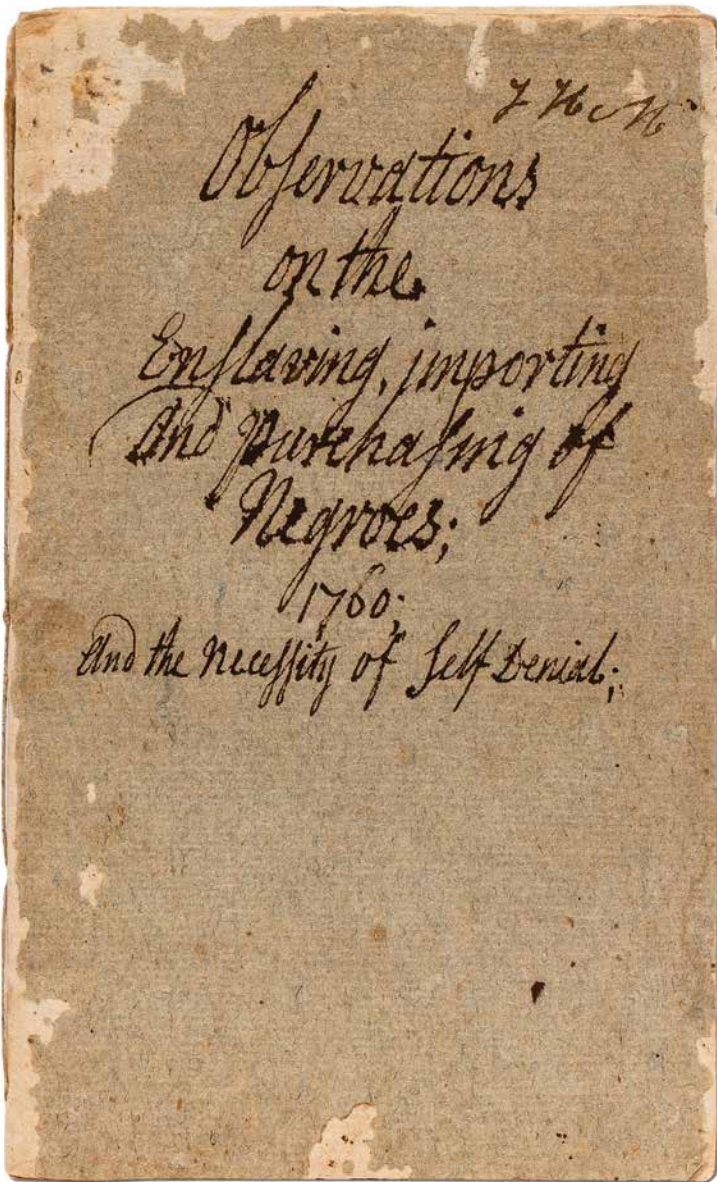 Obſervations
on the
Enſlaving, importing
And purchaſing of
Negroes;
1760;
And the Neceſſity of Self Denial;